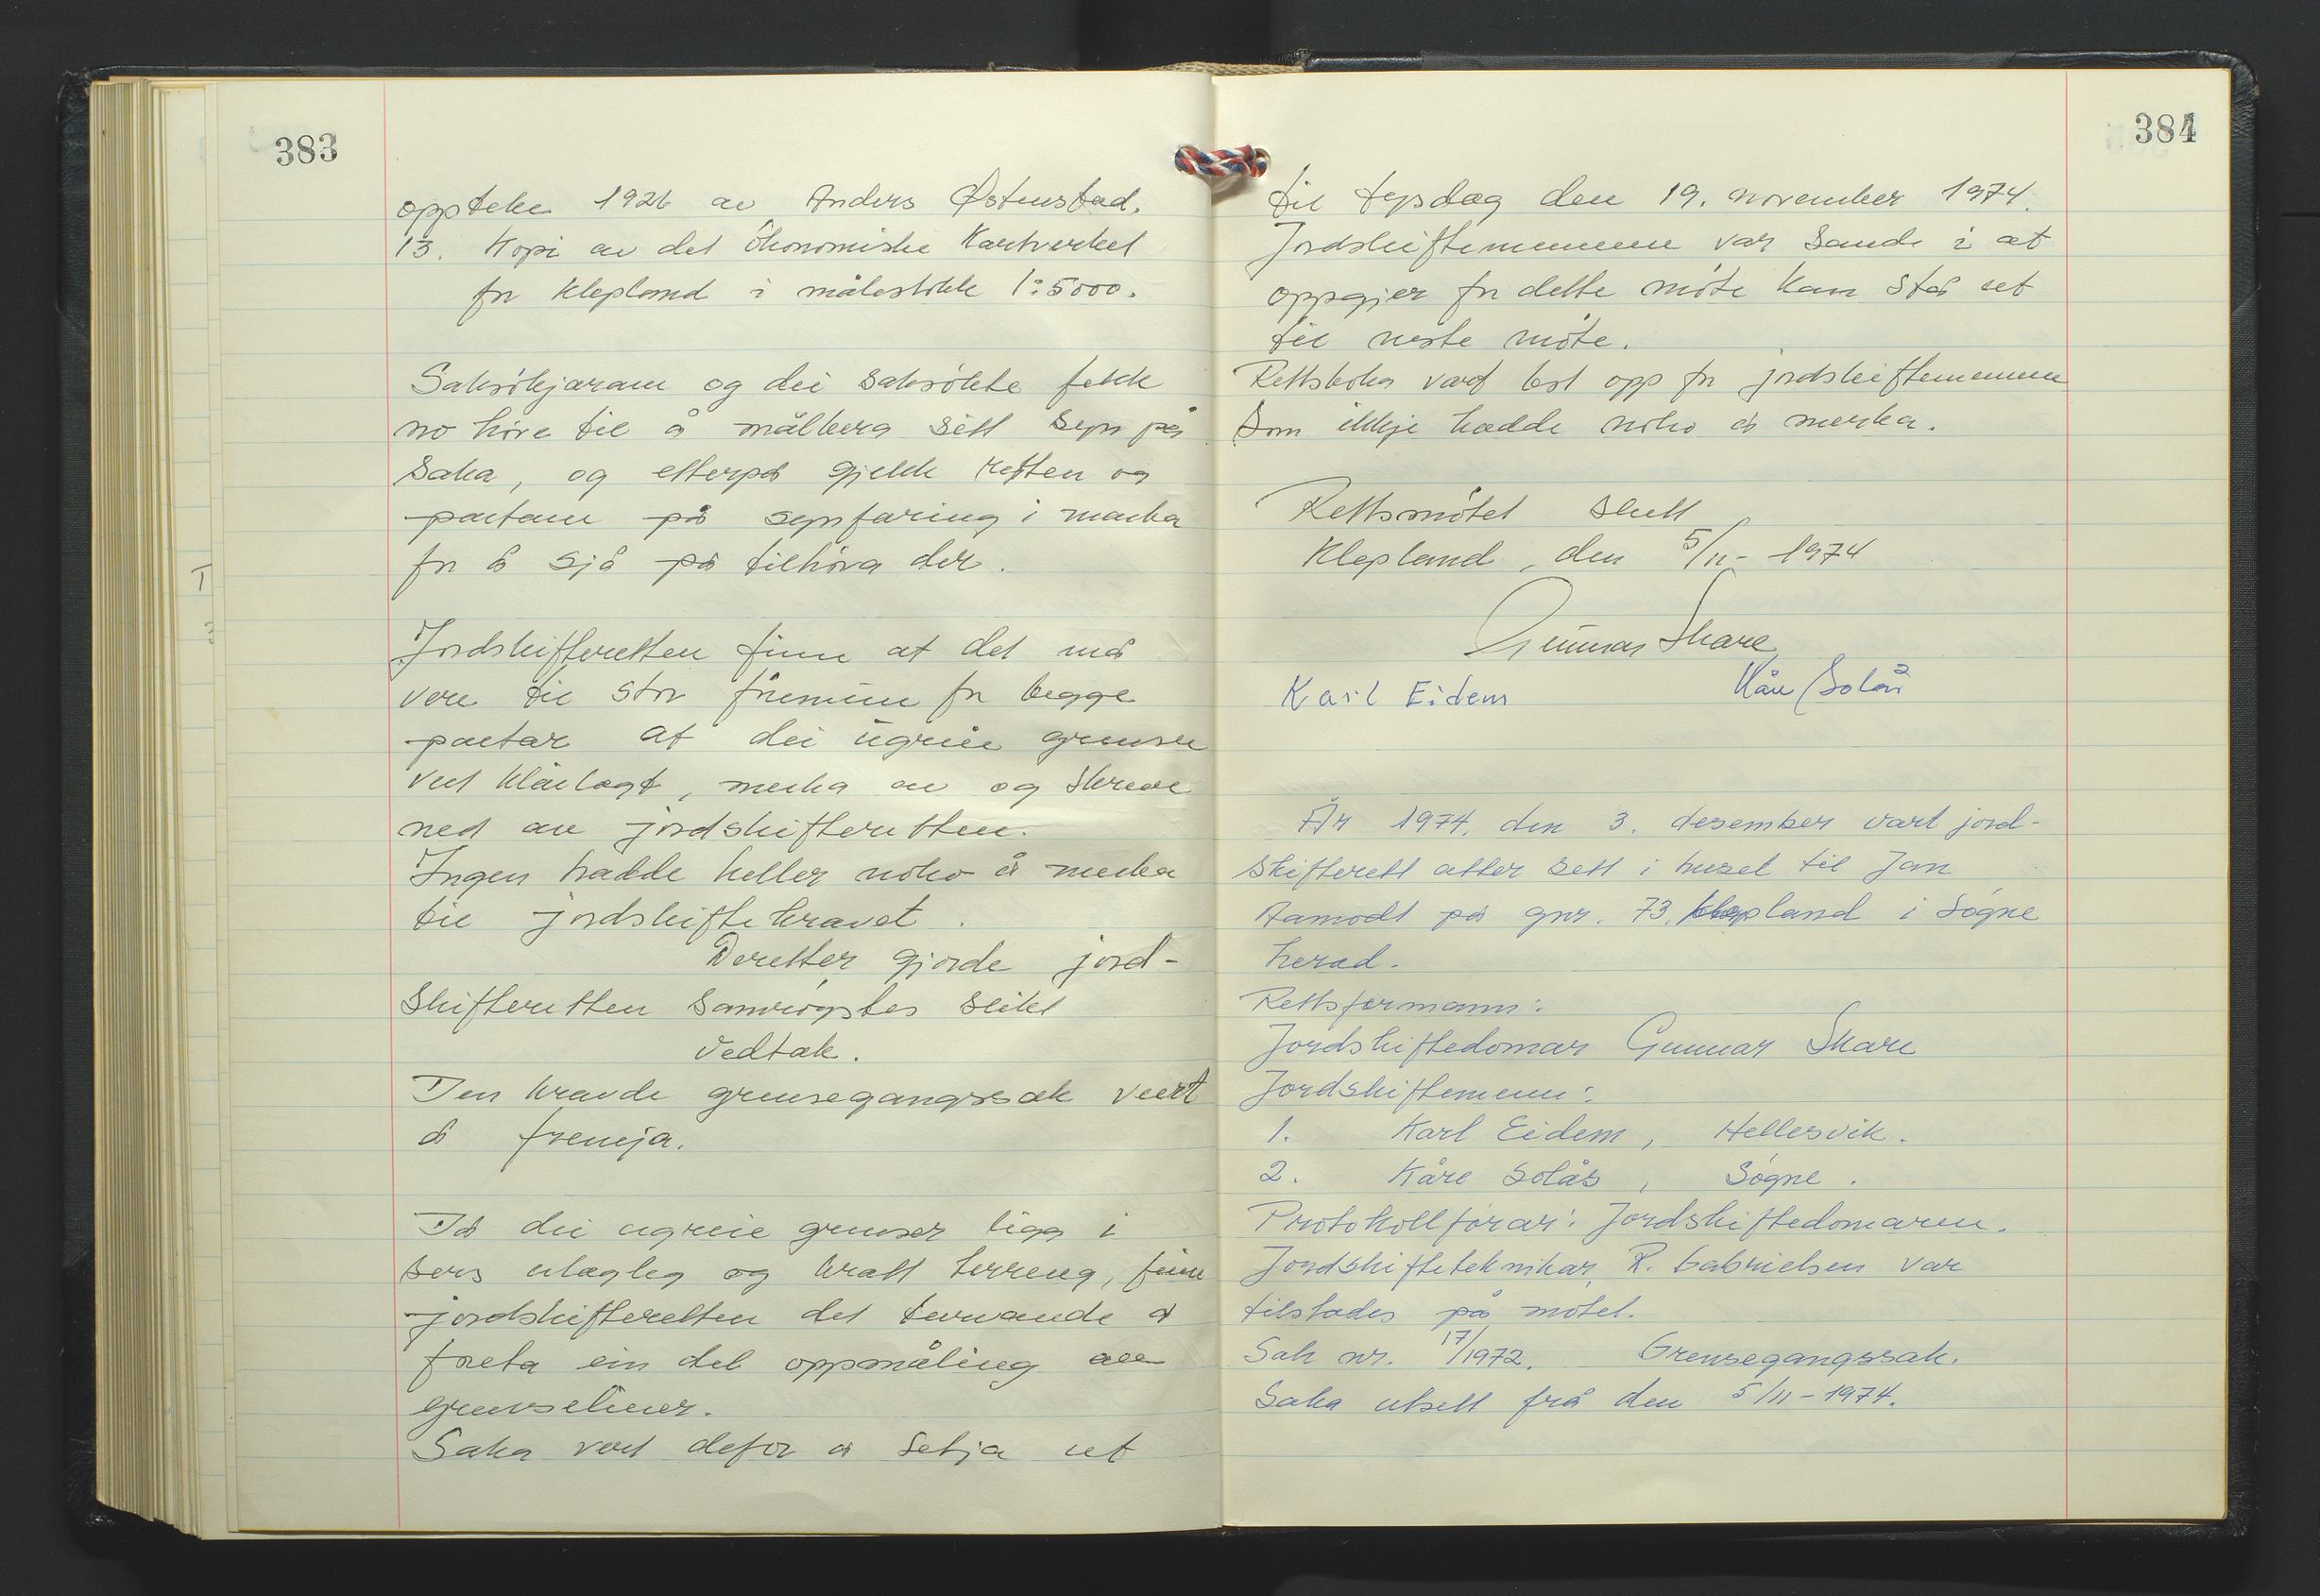 383
oppteke 1926 av Anders Østenstad.
13. Kopi av det økonomiske Kartverket
for Klepland i målestokk 1:5000.
Saksøkjarane og dei saksøkte fekk
no høve til å målbera sitt syn på
saka, og etterpå gjekk retten og
partane på synfaring i marka
for å sjå på tilhøva der.
Jordskifteretten finn at det må
vere til stor föremun for begge
partar at dei ugreie grenser
vert klårlagt, merka av og skreve
ned av jordskifteretten.
Ingen hadde heller noko å merka
til jordskiftekravet.
Deretter gjorde jord-
skifteretten samrøystes slikt
vedtak.
Den kravde grensegangssak vert
å fremja.
Då dei ugreie grenser ligg i
sers ulagleg og bratt terreng, finn
jordskifteretten det turvande å
foreta ein del oppmåling av
grenseliner.
Saka vert defor å setja ut
384
til tysdag den 19. november 1974.
Jordskiftemennene var sande i at
oppgjer for dette møte kan stå ut
til neste møte.
Rettsboka vart lest opp for jordskiftemennene
som ikkje hadde noko å merka.
Rettsmøtet slutt
Klepland, den 5/11- 1974
Gunnar Skare
Karl Eidem Kåre Solås
År 1974, den 3. desember vart jord-
skifterett atter sett i huset til Jan
Aamodt på gnr. 73, Klepland i Søgne
herad.
Rettsformann:
Jordskiftedomar Gunnar Skare
Jordskiftemenn:
1. Karl Eidem, Hellesvik.
2. Kåre Solås, Søgne.
Protokollførar: Jordskiftedomaren.
Jordskifteteknikar R. Gabrielsen var
tilstades på møtet.
Sak nr. 17/1972. Grensegangssak.
Saka utsett frå den 5/11-1974.